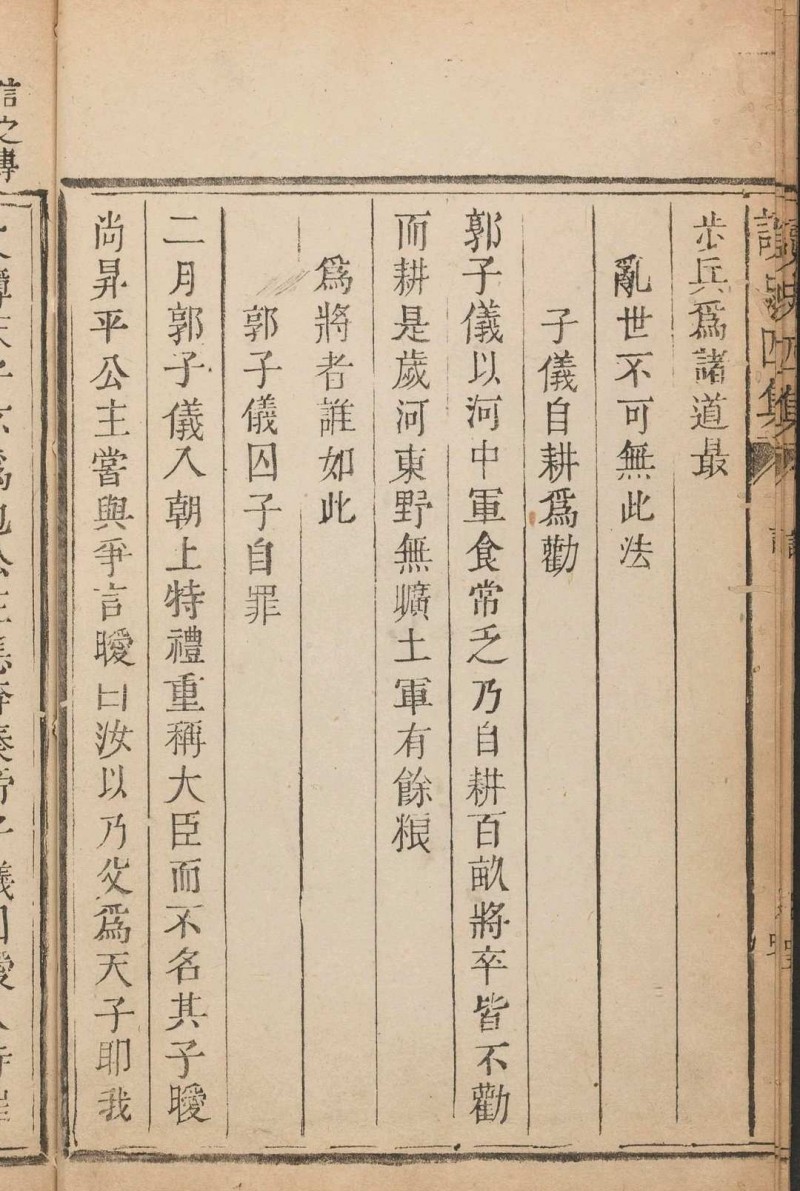 步兵爲諸道最
亂世不可無此法
子儀自耕爲勸
郭子儀以河中軍食常乏乃自耕百畝將卒皆不勸
而耕是歲河東野無壙土軍有餘粮
爲將者誰如此
郭子儀囚子自罪
二月郭子儀入朝上特禮重稱大臣而不名其子曖
尚昇平公主嘗與爭言曖曰汝以乃父爲天子耶我
信之傳